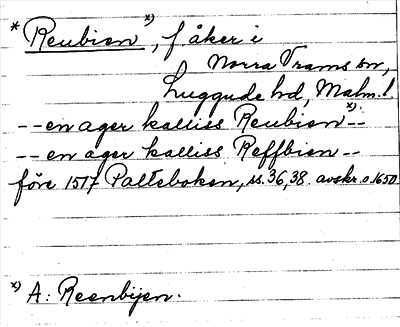 * Reubien *), f åker i
Norra Vrams sn,
Luggude hd, Malm. l.
-- en ager kalliss Reubien *) --
-- en ager kalliss Reffbien --
före 1517 Palteboken, ss. 36, 38. avskr. o. 1650
*) A: Reenbijen.